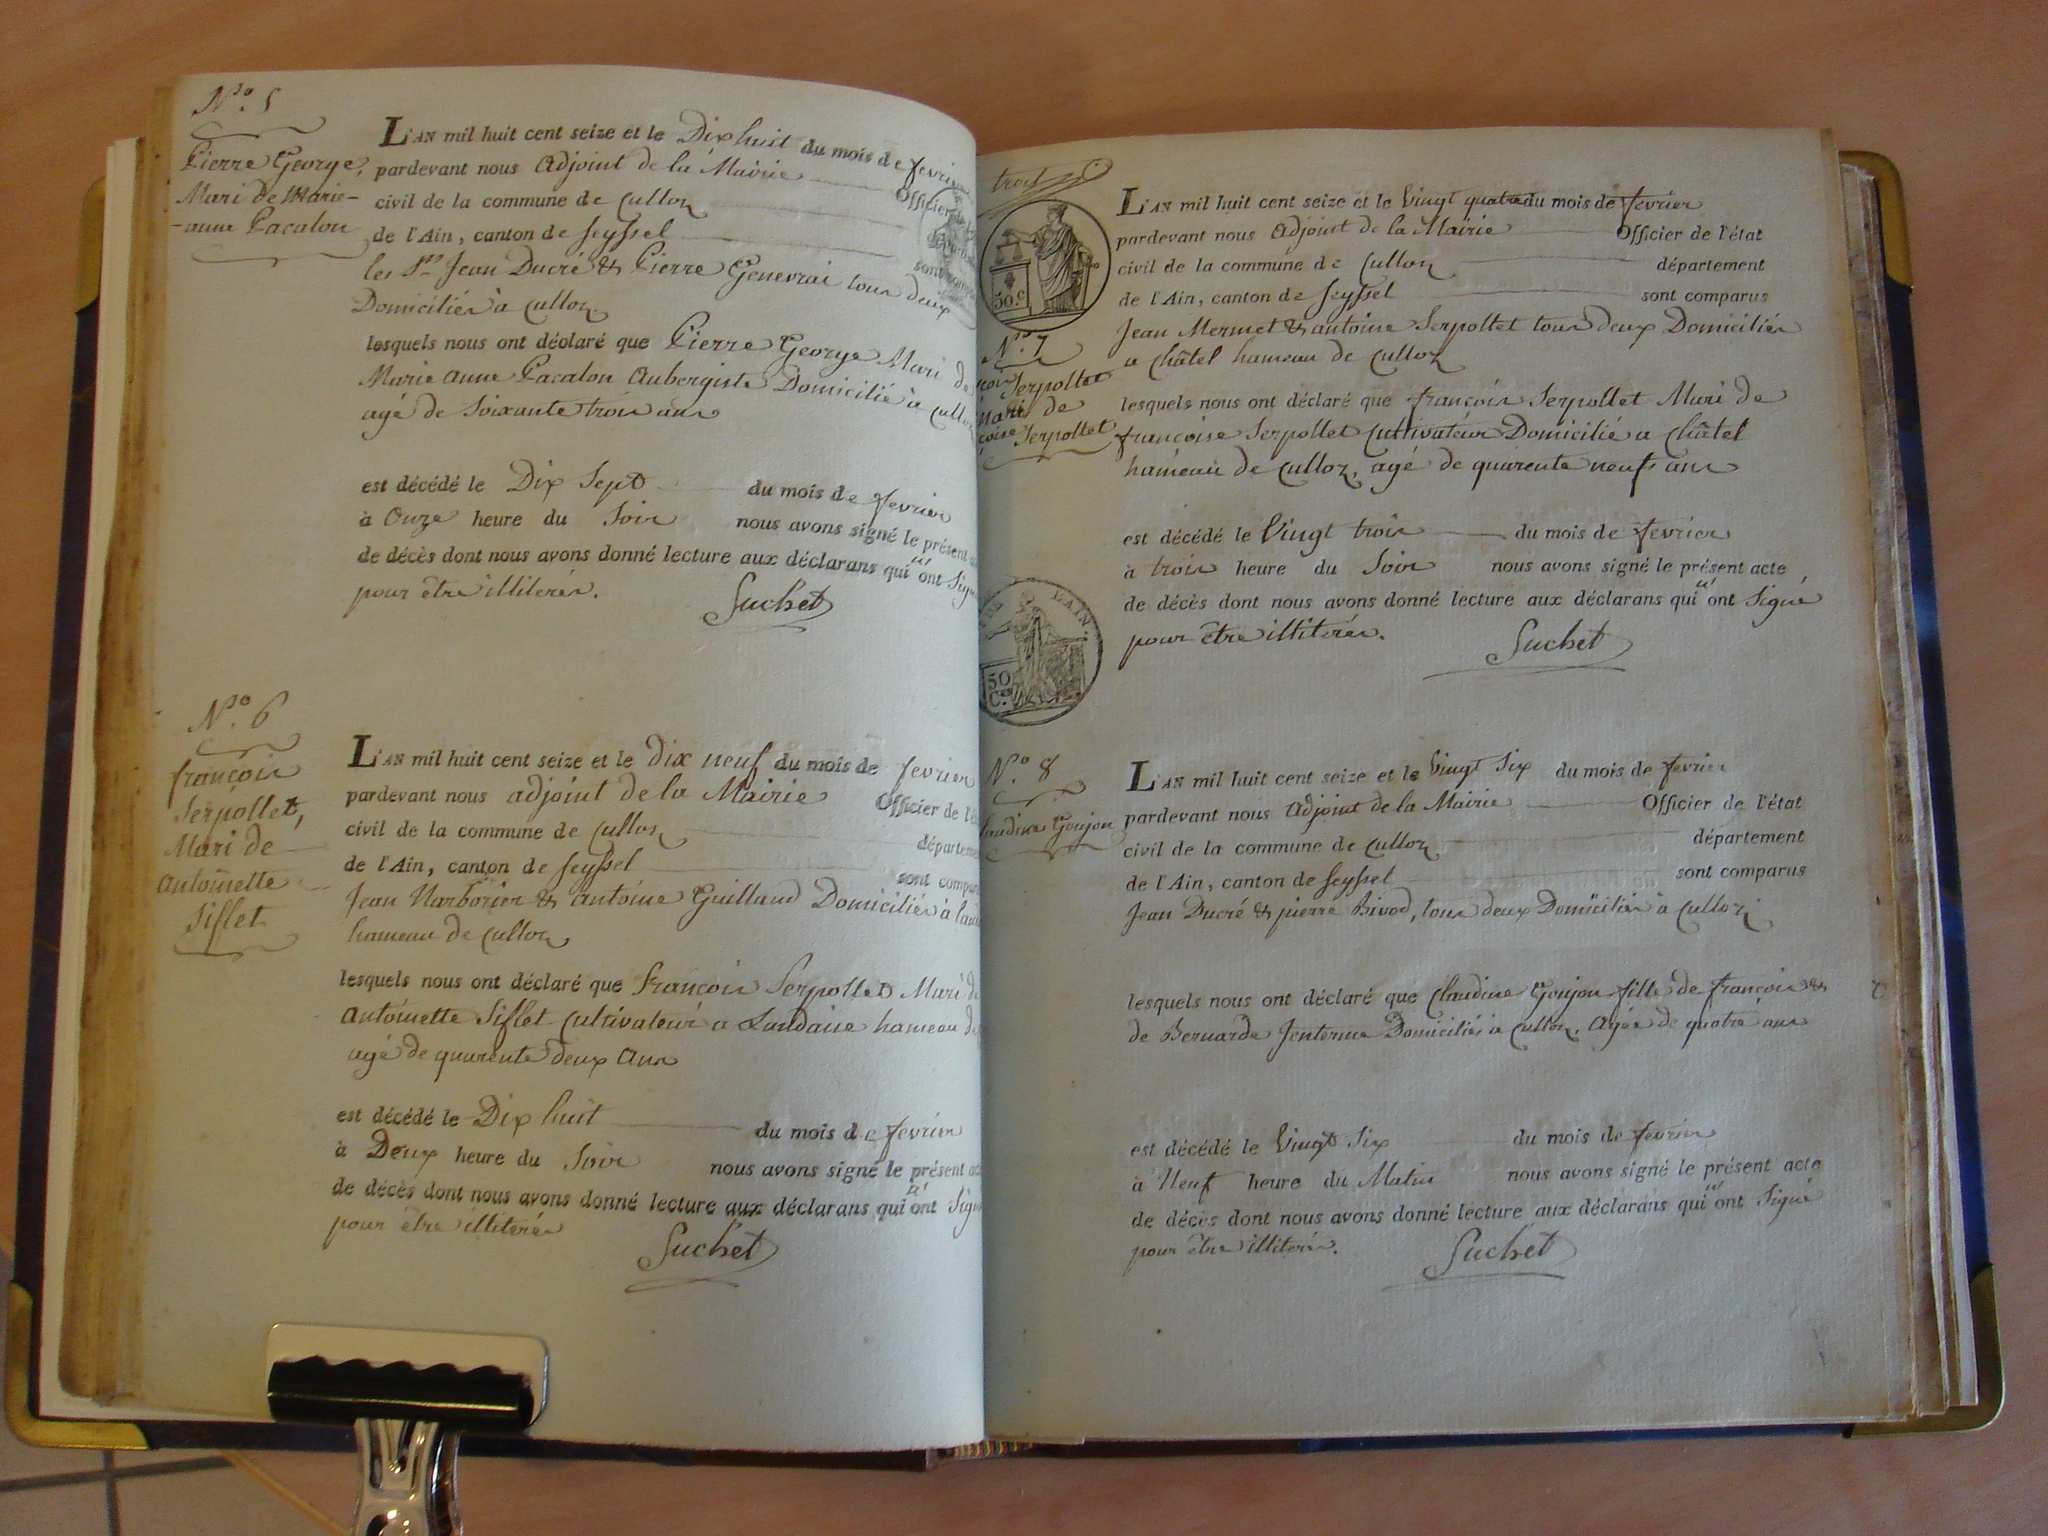 N.º 5
Pierre George,
Mari de Marie-
-anne Pacalon
L'AN mil huit cent seize et le Dix huit du mois de fevrier
pardevant nous Adjoint de la Mairie Officier
civil de la commune de Culloz
de l'Ain, canton de Seyssel
les Srs Jean Ducré & Pierre Genevrai tous deux
Domiciliés à Culloz
lesquels nous ont déclaré que Pierre George Mari de
Marie anne Pacalon Aubergiste Domicilié à Culloz
agé de Soixante trois ans
est décédé le Dix Sept du mois de fevrier
à Onze heure du Soir nous avons signé le présent
de décès dont nous avons donné lecture aux déclarans qui n' ont
pour être illiterés.
Suchet
N.º 6
françois
Serpollet,
Mari de
Antoinette
Siflet
L'AN mil huit cent seize et le dix neuf du mois de fevrier
pardevant nous adjoint de la Mairie Officier de l'é
civil de la commune de Culloz départeme
de l'Ain, canton de Seyssel sont compar
Jean Narborier & antoine Guilland Domiciliés à
hameau de Culloz
lesquels nous ont déclaré que françois Serpollet Mari de
Antoinette Siflet Cultivateur a Landaise hameau de
agé de quarente deux ans
est décédé le Dix huit du mois de fevrier
à Deux heure du Soir nous avons signé le présent
de décès dont nous avons donné lecture aux déclarans qui n' ont
pour être illiterés
Suchet
trois
50 c
N.º 7
Serpollet
Mari de
Serpollet
L'AN mil huit cent seize et le Vingt quatre du mois de fevrier
pardevant nous Adjoint de la Mairie Officier de l'état
civil de la commune de Culloz département
de l'Ain, canton de Seyssel sont comparus
Jean Mermet & antoine Serpollet tous deux Domiciliés
a Châtel hameau de Culloz
lesquels nous ont déclaré que françois Serpollet Mari de
françoise Serpollet Cultivateur Domicilié a Châtel
hameau de Culloz, agé de quarente neuf ans
est décédé le Vingt trois du mois de fevrier
à trois heure du Soir nous avons signé le présent acte
de décès dont nous avons donné lecture aux déclarans qui n' ont Signé
pour être illiterés.
Suchet
L'AIN
50
C.
N.º 8
Goujon
L'AN mil huit cent seize et le Vingt Six du mois de fevrier
pardevant nous Adjoint de la Mairie Officier de l'état
civil de la commune de Culloz département
de l'Ain, canton de Seyssel sont comparus
Jean Ducré & pierre Bivod, tous deux Domiciliés à Culloz
lesquels nous ont déclaré que Claudine Goujon fille de françois &
de Bernarde Domiciliés à Culloz, Agée de quatre ans
est décédé le Vingt Six du mois de fevrier
à Neuf heure du Matin nous avons signé le présent acte
de décès dont nous avons donné lecture aux déclarans qui n' ont Signé
pour être illiterés.
Suchet